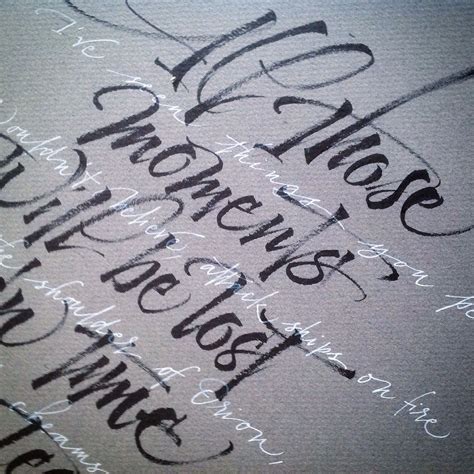 All those
moments
Will be lost
in Time
I've seen things you pe
wouldn't believe, attack ships on fire
shoulder of Orion,
c beams